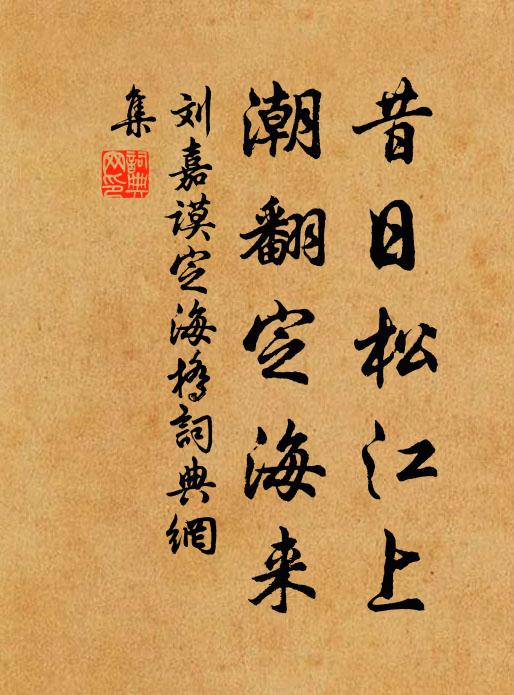 昔日松江上
潮翻定海来
刘嘉谟定海桥詞典網
集
詞典
网印